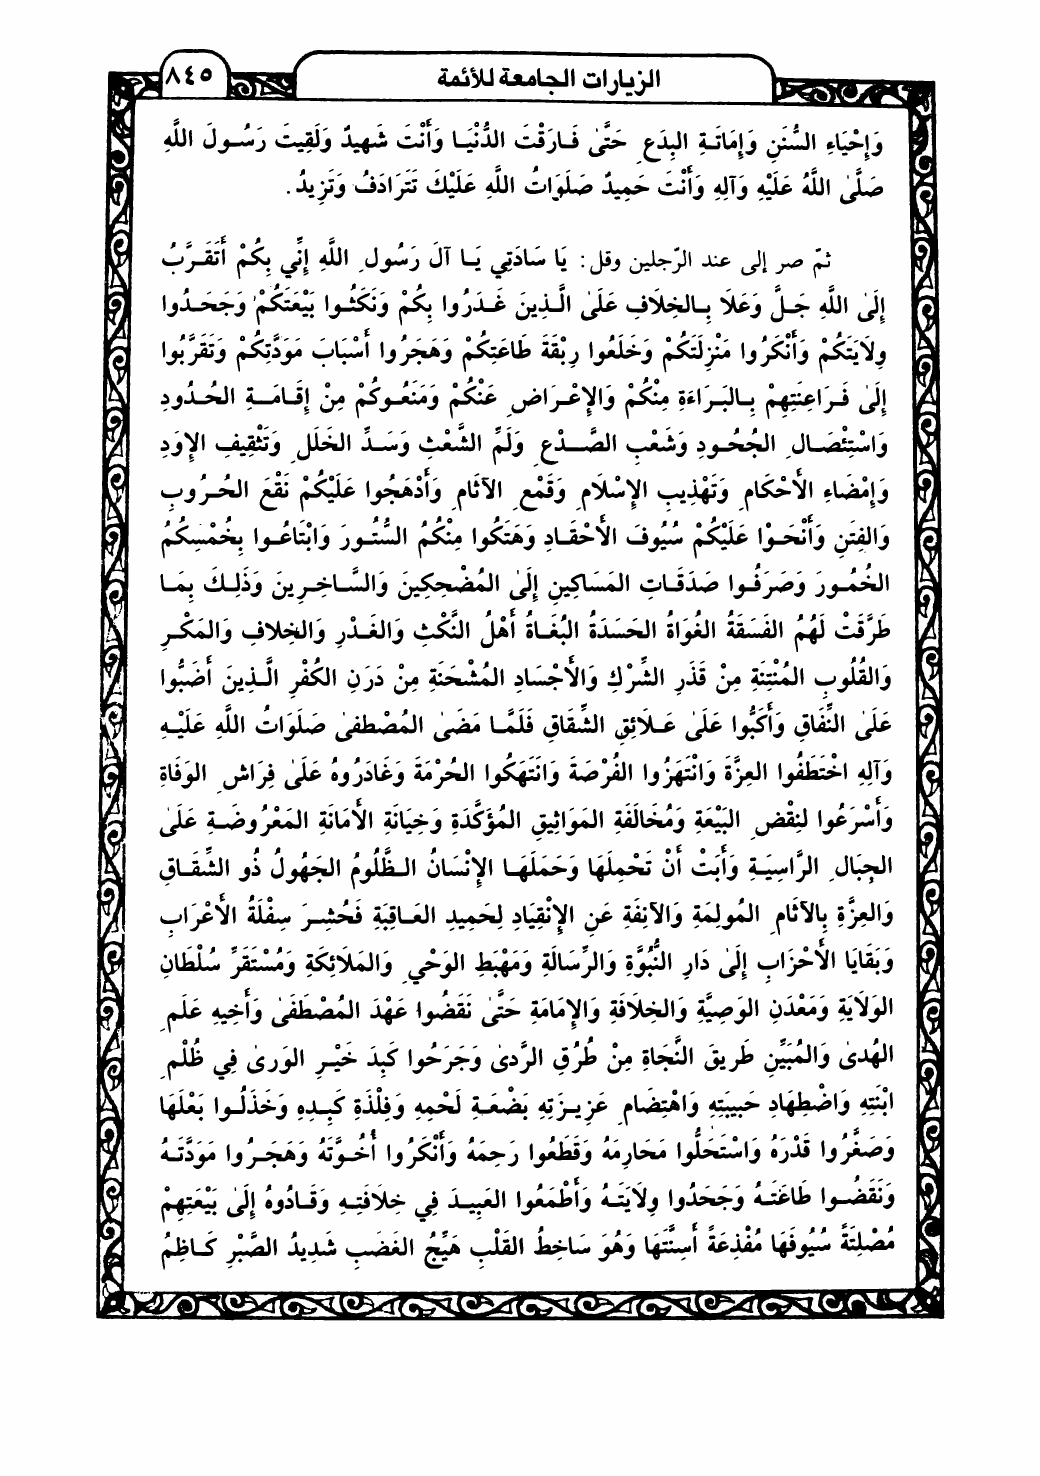 الزيارات الجامعة للأئمة
٨٤٥
وَإحْيَاءِ السُّنَنِ وَإمَاتَةِ البِدَعِ حَتَّىٰ فَارَقْتَ الدُّنْيَا وَأَنْتَ شَهِيدٌ وَلَقِيتَ رَسُولَ اللَّهِ
صَلَّىٰ اللَّهُ عَلَيْهِ وَآلِهِ وَأَنْتَ حَمِيدٌ صَلَوَاتُ اللَّهِ عَلَيْكَ تَتَرَادَفُ وَتَزِيدُ.
ثمّ صر إلى عند الرّجلين وقل: يَا سَادَتِي يَا آلَ رَسُولِ اللَّهِ إنِّي بِكُمْ أَتَقَرَّبُ
إِلَىٰ اللَّهِ جَلَّ وَعَلَا بِالخِلَافِ عَلَىٰ الَّذِينَ غَدَرُوا بِكُمْ وَنَكَثُوا بَيْعَتَكُمْ وَجَحَدُوا
وِلَايَتَكُمْ وَأَنْكَرُوا مَنْزِلَتَكُمْ وَخَلَعُوا رِبْقَةَ طَاعَتِكُمْ وَهَجَرُوا أَسْبَابَ مَوَدَّتِكُمْ وَتَقَرَّبُوا
إِلَىٰ فَرَاعِنَتِهِمْ بِالبَرَاءَةِ مِنْكُمْ وَالإِعْرَاضِ عَنْكُمْ وَمَنَعُوكُمْ مِنْ إقَامَةِ الحُدُودِ
وَاسْتِئْصَالِ الجُحُودِ وَشَعْبِ الصَّدْعِ وَلَمِّ الشَّعْثِ وَسَدِّ الخَلَلِ وَتَثْقِيفِ الاِوَدِ
وَإمْضَاءِ الأَحْكَامِ وَتَهْذِيبِ الإِسْلَامِ وَقَمْعِ الآثَامِ وَأَدْهَجُوا عَلَيْكُمْ نَقْعَ الحُرُوبِ
وَالفِتَنِ وَأَنْحَوْا عَلَيْكُمْ سُيُوفَ الأَحْقَادِ وَهَتَكُوا مِنْكُمُ السُّتُورَ وَابْتَاعُوا بِخُمْسِكُمُ
الخُمُورَ وَصَرَفُوا صَدَقَاتِ المَسَاكِينِ إِلَىٰ المُضْحِكِينَ وَالسَّاخِرِينَ وَذَلِكَ بِمَا
طَرَّقَتْ لَهُمُ الفَسَقَةُ الغُوَاةُ الحَسَدَةُ البُغَاةُ أَهْلُ النَّكْثِ وَالغَدْرِ وَالخِلَافِ وَالمَكْرِ
وَالقُلُوبِ المُنْتِنَةِ مِنْ قَذَرِ الشِّرْكِ وَالأَجْسَادِ المُشْحَنَةِ مِنْ دَرَنِ الكُفْرِ الَّذِينَ أَضَبُّوا
عَلَىٰ النِّفَاقِ وَأَكَبُّوا عَلَىٰ عَلَائِقِ الشِّقَاقِ فَلَمَّا مَضَىٰ المُصْطفىٰ صَلَوَاتُ اللَّهِ عَلَيْهِ
وَآلِهِ اخْتَطَفُوا العِزَّةَ وَانْتَهَزُوا الفُرْصَةَ وَانْتَهَكُوا الحُرْمَةَ وَغَادَرُوهُ عَلَىٰ فِرَاشِ الوَفَاةِ
وَأَسْرَعُوا لِنِقْضِ البَيْعَةِ وَمُخَالَفَةِ المَوَاثِيقِ المُؤَكَّدَةِ وَخِيَانَةِ الأَمَانَةِ المَعْرُوضَةِ عَلَىٰ
الجِبَالِ الرَّاسِيَةِ وَأَبَتْ أَنْ تَحْمِلَهَا وَحَمَلَهَا الإِنْسَانُ الظَّلُومُ الجَهُولُ ذُو الشِّقَاقِ
وَالعِزَّةِ بِالآثَامِ المُولِمَةِ وَالاَنِفَةِ عَنِ الاِنْقِيَادِ لِحَمِيدِ العَاقِبَةِ فَحُشِرَ سِفْلَةُ الأَعْرَابِ
وَبَقَايَا الأَحْزَابِ إِلَىٰ دَارِ النُّبُوَّةِ وَالرِّسَالَةِ وَمَهْبَطِ الوَحْيِ وَالمَلَائِكَةِ وَمُسْتَقَرِّ سُلْطَانِ
الوَلَايَةِ وَمَعْدَنِ الوَصِيَّةِ وَالخِلَافَةِ وَالإِمَامَةِ حَتَّىٰ نَقَضُوا عَهْدَ المُصْطَفَىٰ وَأَخِيهِ عَلَمِ
الهُدىٰ وَالمُبَيِّنِ طَرِيقَ النَّجَاةِ مِنْ طُرُقِ الرَّدىٰ وَجَرَحُوا كَبِدَ خَيْرِ الوَرىٰ فِي ظُلْمِ
ابْنَتِهِ وَاضْطِهَادِ حَبِيبَتِهِ وَاهْتِضَامِ عَزِيزَتِهِ بَضْعَةِ لَحْمِهِ وَفِلْذَةِ كَبِدِهِ وَخَذَلُوا بَعْلَهَا
وَصَغَّرُوا قَدْرَهُ وَاسْتَحَلُّوا مَحَارِمَهُ وَقَطَعُوا رَحِمَهُ وَأَنْكَرُوا أُخُوَّتَهُ وَهَجَرُوا مَوَدَّتَهُ
وَنَقَضُوا طَاعَتَهُ وَجَحَدُوا وِلَايَتَهُ وَأَطْمَعُوا العَبِيدَ فِي خِلَافَتِهِ وَقَادُوهُ إِلَىٰ بَيْعَتِهِمْ
مُصْلِتَةً سُيُوفَهَا مُقْذِعَةً أَسِنَّتَهَا وَهُوَ سَاخِطُ القَلْبِ هَيِّجُ الغَضَبِ شَدِيدُ الصَّبْرِ كَاظِمُ